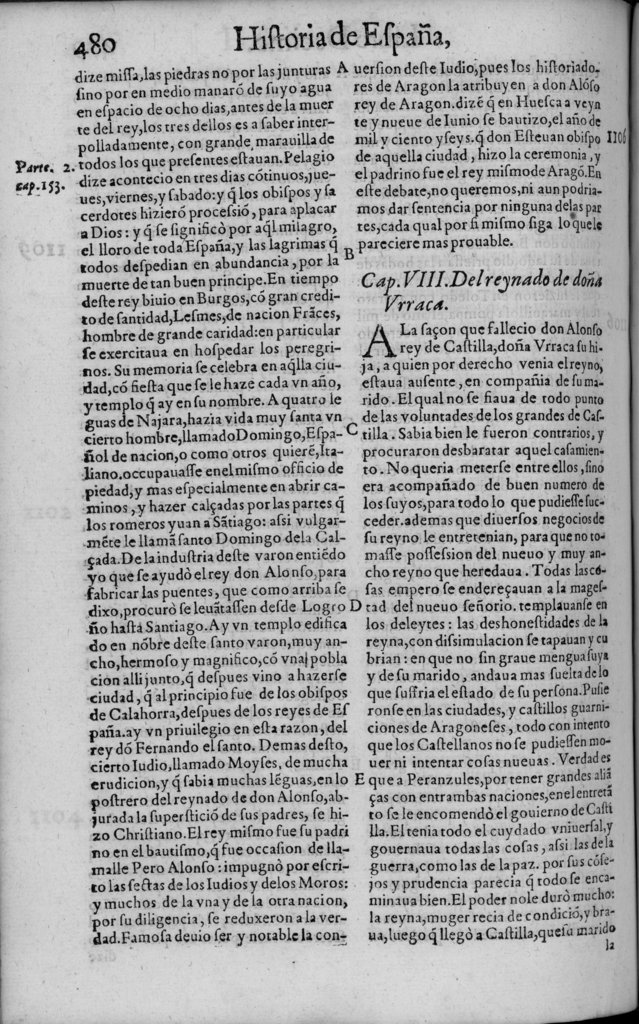 480
Hiſtoria de Eſpaña,
dize miſſa, las piedras no por las junturas
ſino por en medio manaró de ſuyo agua
en eſpacio de ocho dias, antes de la muer
te del rey, los tres dellos es a ſaber inter-
polladamente, con grande marauilla de
todos los que preſentes eſtauan. Pelagio
Parte. 2.
cap. 153.
dize acontecio en tres dias cótinuos, jue-
ues, viernes, y ſabado: y q̃ los obiſpos y ſa
cerdotes hizieró proceſsió, para aplacar
a Dios: y q̃ ſe ſignificò por aq̃l milagro,
el lloro de toda Eſpaña, y las lagrimas q̃
todos deſpedian en abundancia, por la
muerte de tan buen principe. En tiempo
deſte rey biuio en Burgos, có gran credi-
to de ſantidad, Leſmes, de nacion Frãces,
hombre de grande caridad: en particular
ſe exercitaua en hoſpedar los peregri-
nos. Su memoria ſe celebra en aq̃lla ciu-
dad, có fieſta que ſe le haze cada vn año,
y templo q̃ ay en ſu nombre. A quatro le
guas de Najara, hazia vida muy ſanta vn
cierto hombre, llamado Domingo, Eſpa-
ñol de nacion, o como otros quierẽ, Ita-
liano. occupauaſſe en el miſmo officio de
piedad, y mas eſpecialmente en abrir ca-
minos, y hazer calçadas por las partes q̃
los romeros yuan a Sãtiago: aſsi vulgar-
mẽte le llamã ſanto Domingo de la Cal-
çada. De la induſtria deſte varon entiẽdo
yo que ſe ayudò el rey don Alonſo, para
fabricar las puentes, que como arriba ſe
dixo, procurò ſe leuãtaſſen deſde Logro
ño haſta Santiago. Ay vn templo edifica
do en nóbre deſte ſanto varon, muy an-
cho, hermoſo y magnifico, có vna pobla
cion alli junto, q̃ deſpues vino a hazerſe
ciudad, q̃ al principio fue de los obiſpos
de Calahorra, deſpues de los reyes de Eſ
paña. ay vn priuilegio en eſta razon, del
rey dó Fernando el ſanto. Demas deſto,
cierto Iudio, llamado Moyſes, de mucha
erudicion, y q̃ ſabia muchas lẽguas, en lo
poſtrero del reynado de don Alonſo, ab-
jurada la ſuperſticiõ de ſus padres, ſe hi-
zo Chriſtiano. El rey miſmo fue ſu padri
no en el bautiſmo, q̃ fue occaſion de lla-
malle Pero Alonſo: impugnò por eſcri-
to las ſectas de los Iudios y de los Moros:
y muchos de la vna y de la otra nacion,
por ſu diligencia, ſe reduxeron a la ver-
dad. Famoſa deuio ſer y notable la con-
A
B
C
D
E
uerſion deſte Iudio, pues los hiſtoriado-
res de Aragon la atribuyen a don Alóſo
rey de Aragon. dizẽ q̃ en Hueſca a veyn
te y nueue de Iunio ſe bautizo, el año de
mil y ciento y ſeys. q̃ don Eſteuan obiſpo
1106
de aquella ciudad, hizo la ceremonia, y
el padrino fue el rey miſmo de Aragõ. En
eſte debate, no queremos, ni aun podria-
mos dar ſentencia por ninguna de las par
tes, cada qual por ſi miſmo ſiga lo que le
pareciere mas prouable.
Cap. VIII. Del reynado de doña
Vrraca.
A La ſaçon que fallecio don Alonſo
rey de Caſtilla, doña Vrraca ſu hi-
ja, a quien por derecho venia el reyno,
eſtaua auſente, en compañia de ſu ma-
rido. El qual no ſe fiaua de todo punto
de las voluntades de los grandes de Caſ-
tilla. Sabia bien le fueron contrarios, y
procuraron desbaratar aquel caſamien-
to. No queria meterſe entre ellos, ſino
era acompañado de buen numero de
los ſuyos, para todo lo que pudieſſe ſuc-
ceder. ademas que diuerſos negocios de
ſu reyno le entretenian, para que no to-
maſſe poſſeſsion del nueuo y muy an-
cho reyno que heredaua. Todas las có-
ſas empero ſe endereçauan a la mageſ-
tad del nueuo ſeñorio. templauanſe en
los deleytes: las deshoneſtidades de la
reyna, con diſsimulacion ſe tapauan y cu
brian: en que no ſin graue mengua ſuya
y de ſu marido, andaua mas ſuelta de lo
que ſuffria el eſtado de ſu perſona. Puſie
ronſe en las ciudades, y caſtillos guarni-
ciones de Aragoneſes, todo con intento
que los Caſtellanos no ſe pudieſſen mo-
uer ni intentar coſas nueuas. Verdad es
que a Peranzules, por tener grandes aliã
ças con entrambas naciones, en el entretã
to ſe le encomendò el gouierno de Caſti
lla. El tenia todo el cuydado vniuerſal, y
gouernaua todas las coſas, aſsi las de la
guerra, como las de la paz. por ſus cóſe-
jos y prudencia parecia q̃ todo ſe enca-
minaua bien. El poder no le durò mucho:
la reyna, muger recia de condició, y bra-
ua, luego q̃ llegò a Caſtilla, que ſu marido
la